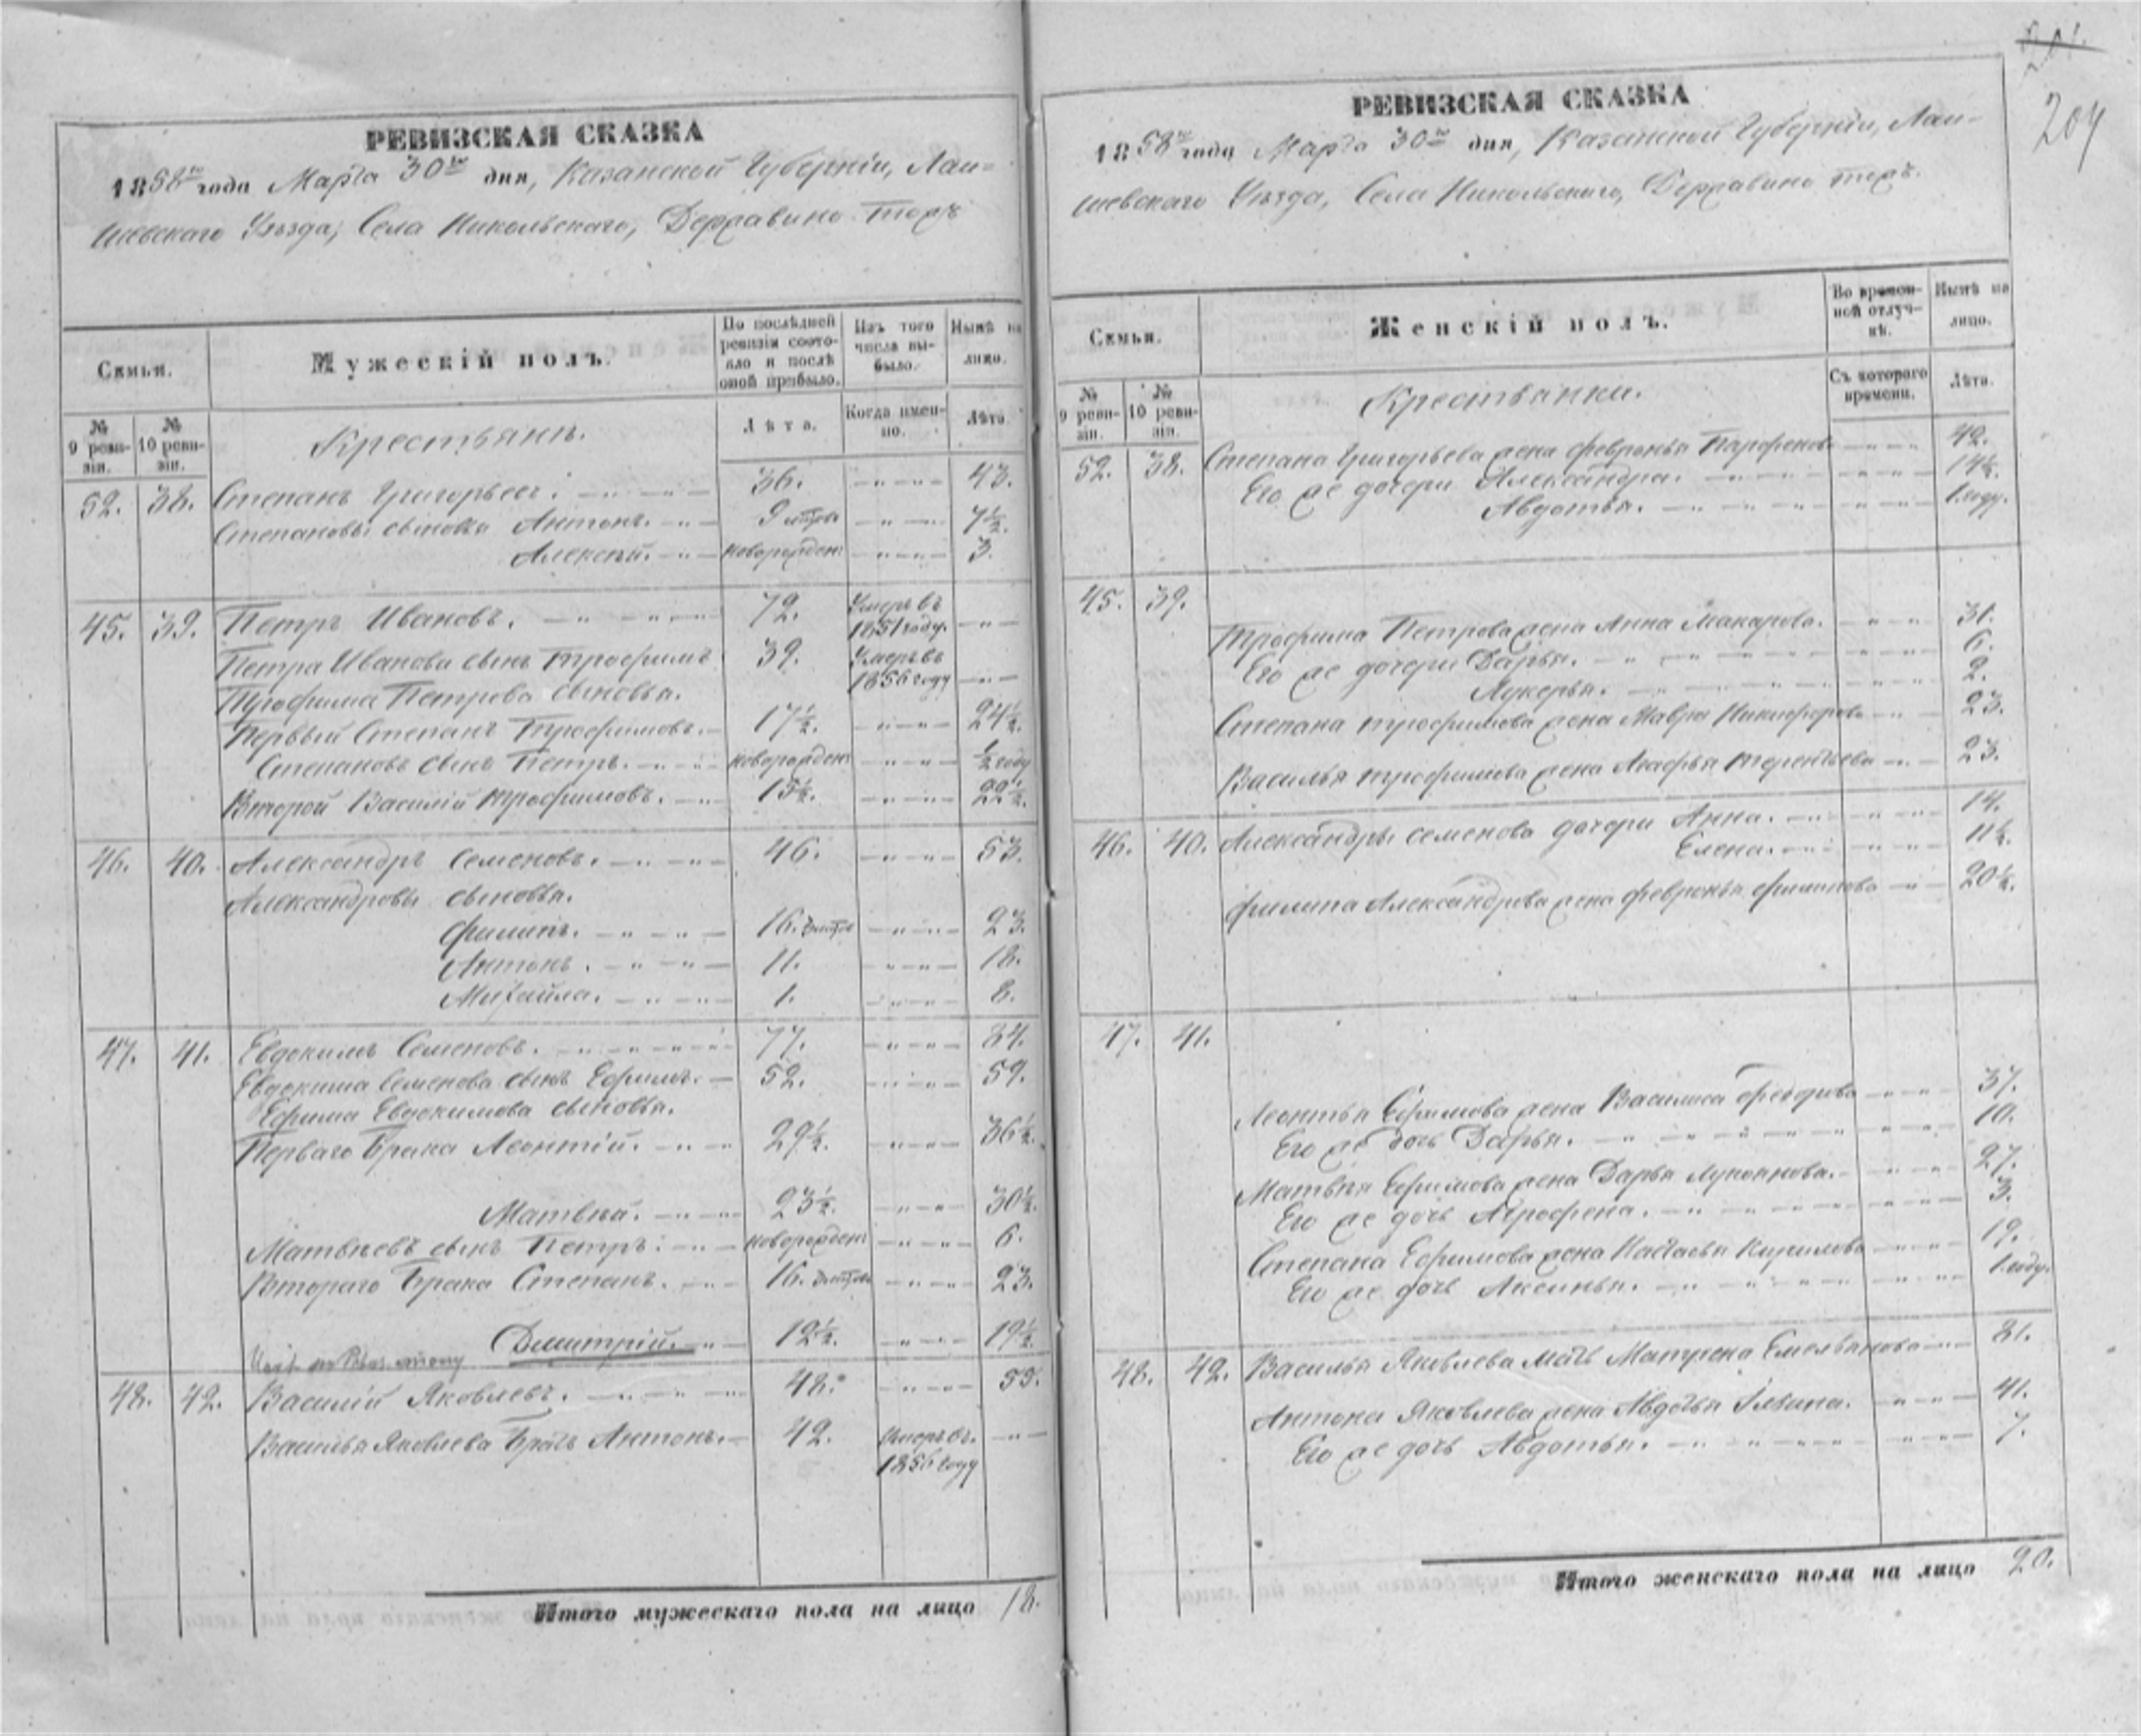 РЕВИЗСКАЯ СКАЗКА
1858го года Марта 30го дня, Казанской Губерніи, Лаи-
шевскаго Уѣзда, Села Никольскаго, Державино тожъ
Семьи.
Мужескій полъ.
По послѣдней ревизіи состо-
яло и послѣ оной прибыло.
Изъ того числа вы-
было.
Нынѣ на лицо.
№ 9 реви-
зіи.
№ 10 реви-
зіи.
Крестьянъ.
Лѣта.
Когда имен-
но.
Лѣта.
52. 38. Степанъ Григорьевъ. 36. 43.
Степановы сыновья Антонъ. 7½.
Алексѣй. новорожден 3.
45. 39. Петръ Ивановъ. 72. Умеръ въ 1851 году.
Петра Иванова сынъ Трофимъ 39. Умеръ въ 1856 году
Трофима Петрова сыновья.
Первый Степанъ Трофимовъ. 17½. 24½.
Степановъ сынъ Петръ. новорожден ½ году
Второй Василій Трофимовъ. 15½. 22½.
46. 40. Александръ Семеновъ. 46. 53.
Александровы сыновья.
Филипъ. 16. 23.
Антонъ. 11. 18.
Михайла. 1. 8.
47. 41. Евдокимъ Семеновъ. 77. 84.
Евдокима Семенова сынъ Ефимъ. 52. 59.
Ефима Евдокимова сыновья.
Перваго брака Леонтій. 29½. 36½.
Матвѣй. 23½. 30½.
Матвѣевъ сынъ Петръ. новорожден 6.
Втораго брака Степанъ. 16. 23.
Дмитрій. 12½. 19½.
48. 42. Василій Яковлевъ. 48. 55.
Василья Яковлева братъ Антонъ. 42. Умеръ въ 1856 году
Итого мужескаго пола на лицо 18.
204
РЕВИЗСКАЯ СКАЗКА
1858го года Марта 30го дня, Казанской Губерніи, Лаи-
шевскаго Уѣзда, Села Никольскаго, Державино тожъ.
Семьи.
Женскій полъ.
Во времен-
ной отлуч-
кѣ.
Нынѣ на лицо.
№ 9 реви-
зіи.
№ 10 реви-
зіи.
Крестьянки.
Съ котораго времени.
Лѣта.
52. 38. Степана Григорьева жена Февронья Парфенова 42.
Его же дочери Александра. 14½.
Авдотья. 1 году.
45. 39.
Трофима Петрова жена Анна Макарова. 31.
Его же дочери Дарья. 6.
Лукерья. 2.
Степана Трофимова жена Мавра Никифорова 23.
Василья Трофимова жена Агафья Терентьева 23.
46. 40. Александры Семенова дочери Анна. 14.
Елена. 11½.
Филипа Александрова жена Февронья Филипова 20½.
47. 41.
Леонтья Ефимова жена Василиса Федорова 37.
Его же дочь Дарья. 10.
Матвѣя Ефимова жена Дарья Лукоянова. 27.
Его же дочь Агрофена. 3.
Степана Ефимова жена Настасья Кирилова 19.
Его же дочь Аксинья. 1 году.
48. 42. Василья Яковлева мать Матрена Емельянова 81.
Антона Яковлева жена Авдотья Ильина. 41.
Его же дочь Авдотья. 7.
Итого женскаго пола на лицо 20.